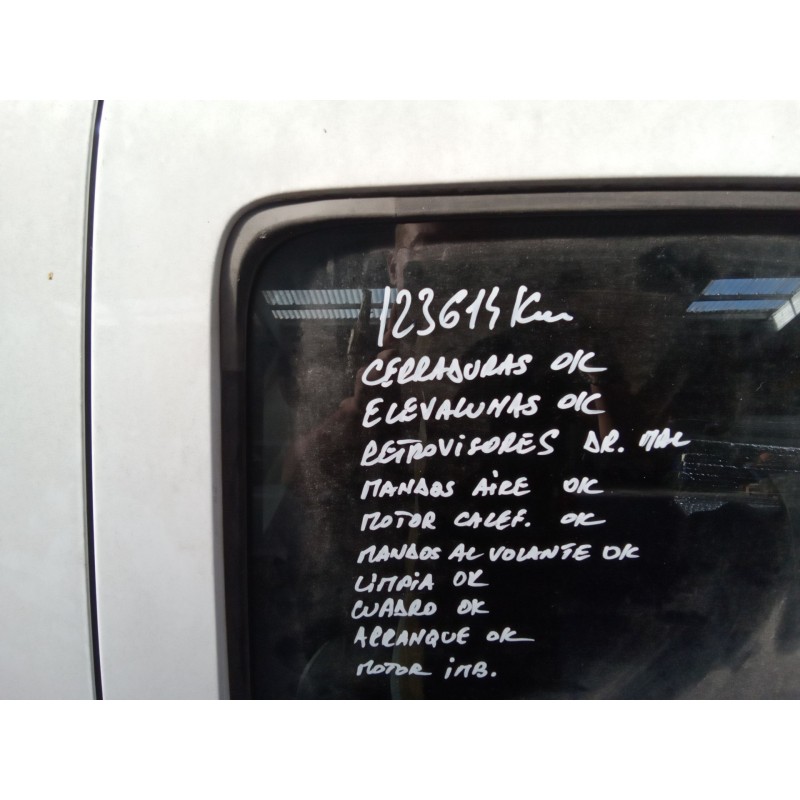 123614 Km
CERRADURAS OK
ELEVALUNAS OK
RETROVISORES DR. MAL
MANDOS AIRE OK
MOTOR CALEF. OK
MANDOS AL VOLANTE OK
LIMPIA OK
CUADRO OK
ARRANQUE OK
MOTOR IMB.